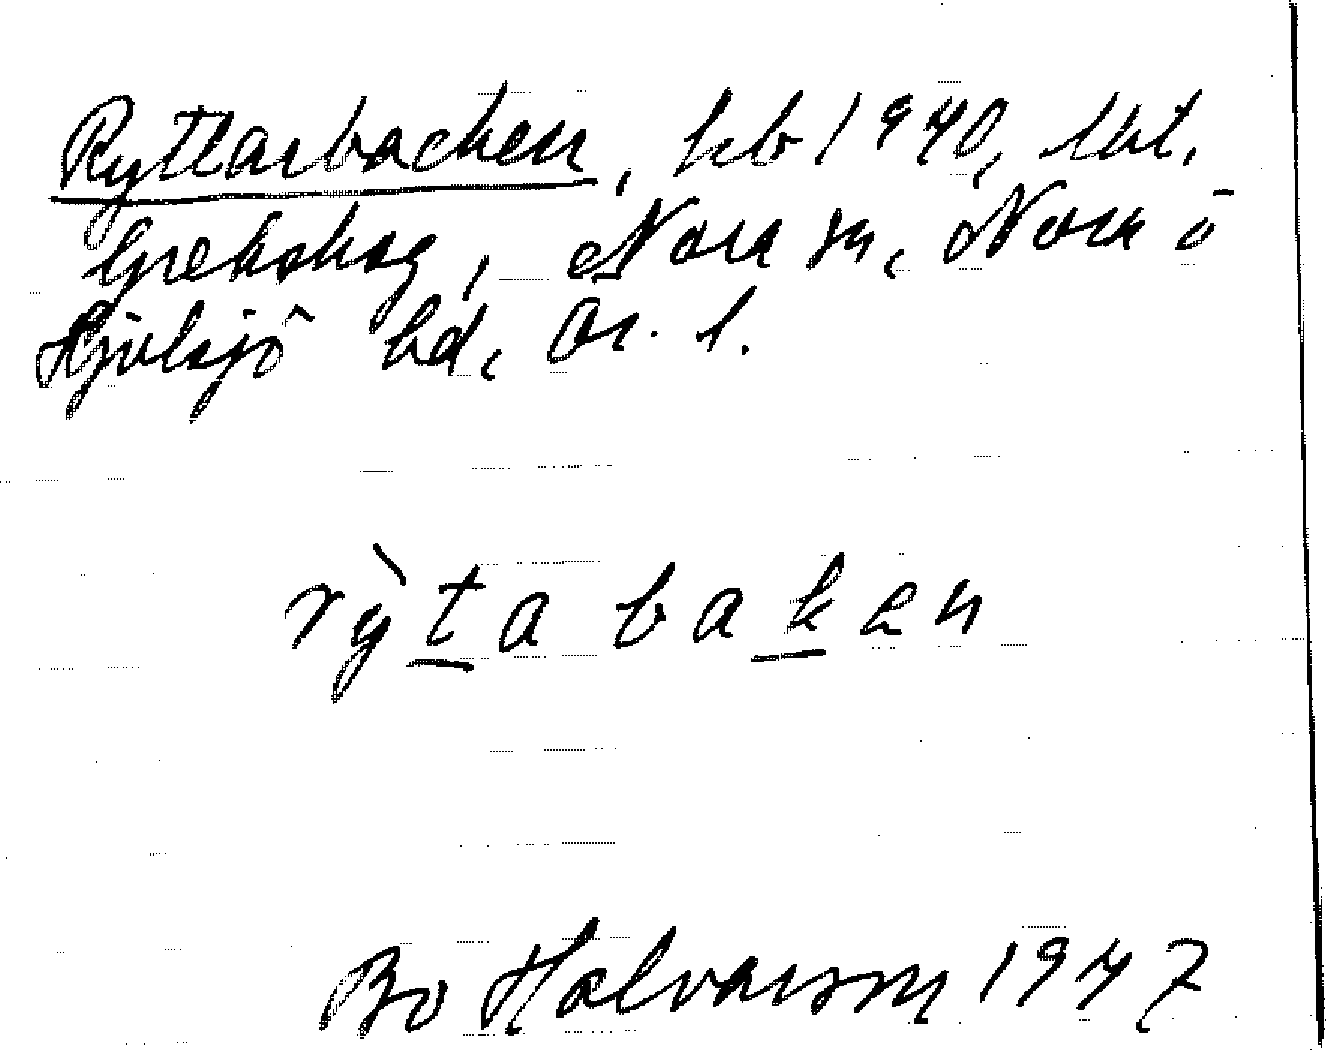 Ryttarbacken, hb 1940, lht.
Grekskog, Nora sn, Nora o
Hjulsjö hd, Ör. l.
rỳta baken
Bo Halvarson 1947